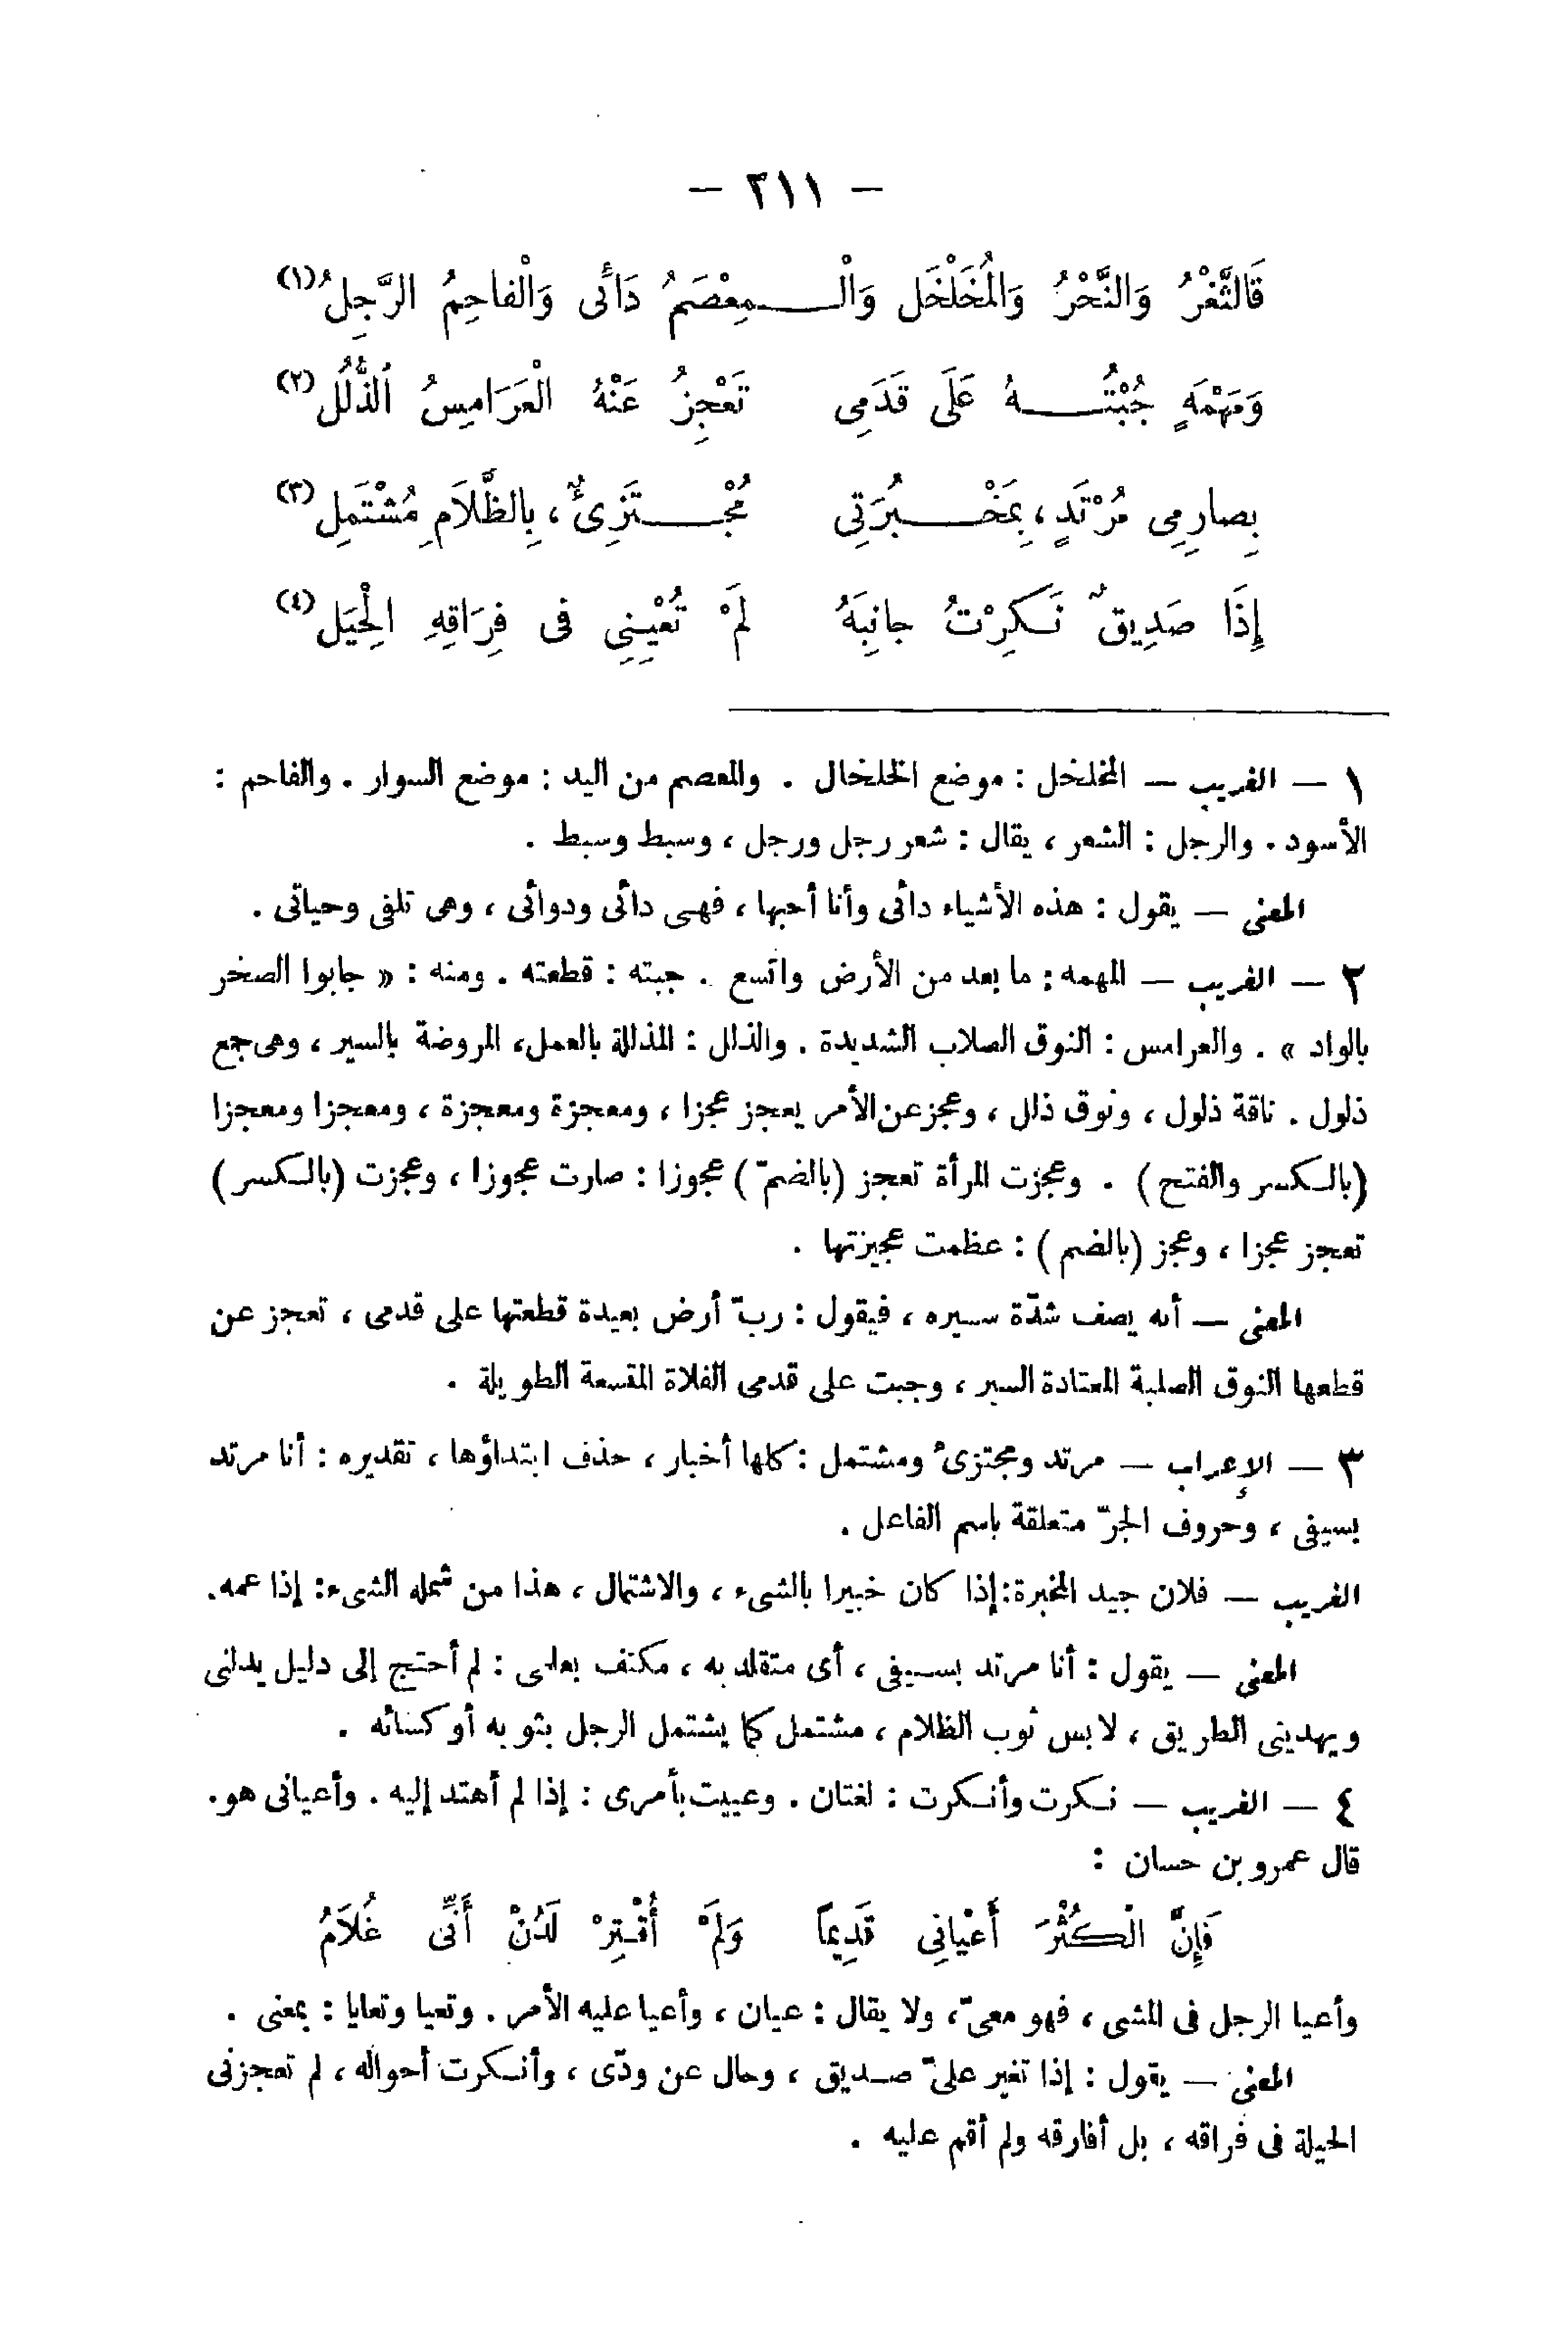 — ٢١١ —
فَالثَّغْرُ وَالنَّحْرُ وَالْمُخَلْخَل وَالْـمِعْصَمُ دَائِى وَالْفاحِمُ الرَّجِلُ (١)
وَمَهْمَهٍ جُبْتُـهُ عَلَى قَدَمِى تَعْجِزُ عَنْهُ الْعَرَامِسُ الذُّلُلُ (٢)
بِصارِمِى مُرْتَدٍ، بِمَخْـبُرَتِى مُجْـتَزِئٌ، بِالظَّلَامِ مُشْتَمِل (٣)
إِذَا صَدِيقٌ نَـكِرْتُ جانِبَهُ لَمْ تُعْيِنِى فى فِرَاقِهِ الْحِيَل (٤)
١ — الغريب — المخلخل : موضع الخلخال . والمعصم من اليد : موضع السوار . والفاحم :
الأسود . والرجل : الشعر ، يقال : شعر رجل ورجل ، وسبط وسبط .
المعنى — يقول : هذه الأشياء دائى وأنا أحبها ، فهى دائى ودوائى ، وهى تلفى وحياتى .
٢ — الغريب — المهمه : ما بعد من الأرض واتسع . جبته : قطعته . ومنه : « جابوا الصخر
بالواد » . والعرامس : النوق الصلاب الشديدة . والذلل : المذللة بالعمل، المروضة بالسير ، وهى جمع
ذلول . ناقة ذلول ، ونوق ذلل ، وعجز عن الأمر يعجز عجزا ، ومعجزة ومعجزة ، ومعجزا ومعجزا
(بالـكسر والفتح) . وعجزت المرأة تعجز (بالضمّ) عجوزا : صارت عجوزا ، وعجزت (بالـكسر)
تعجز عجزا ، وعجز (بالضم) : عظمت عجيزتها .
المعنى — أنه يصف شدّة سـيره ، فيقول : ربّ أرض بعيدة قطعتها على قدمى ، تعجز عن
قطعها النوق الصلبة المعتادة السير ، وجبت على قدمى الفلاة المتسعة الطويلة .
٣ — الإعراب — مرتد ومجتزئ ومشتمل : كلها أخبار ، حذف ابتداؤها ، تقديره : أنا مرتد
بسيفى ، وحروف الجرّ متعلقة باسم الفاعل .
الغريب — فلان جيد المخبرة: إذا كان خبيرا بالشىء ، والاشتمال ، هذا من شمله الشىء: إذا عمه.
المعنى — يقول : أنا مرتد بسـيفى ، أى متقلد به ، مكتف بعلمى : لم أحتج إلى دليل يدلنى
ويهدينى الطريق ، لابس ثوب الظلام ، مشتمل كما يشتمل الرجل بثوبه أو كسائه .
٤ — الغريب — نـكرت وأنـكرت : لغتان . وعييت بأمرى : إذا لم أهتد إليه . وأعيانى هو.
قال عمرو بن حسان :
فَإِنَّ الْـكُثْرَ أَعْيانِى قَدِيمًا وَلَمْ أُقْـتِرْ لَدُنْ أَنِّى غُلَامُ
وأعيا الرجل فى المشى ، فهو معىّ، ولا يقال : عيان ، وأعيا عليه الأمر . وتعيا وتعايا : بمعنى .
المعنى — يقول : إذا تغير علىّ صـديق ، وحال عن ودّى ، وأنـكرت أحواله ، لم تعجزنى
الحيلة فى فراقه ، بل أفارقه ولم أقم عليه .